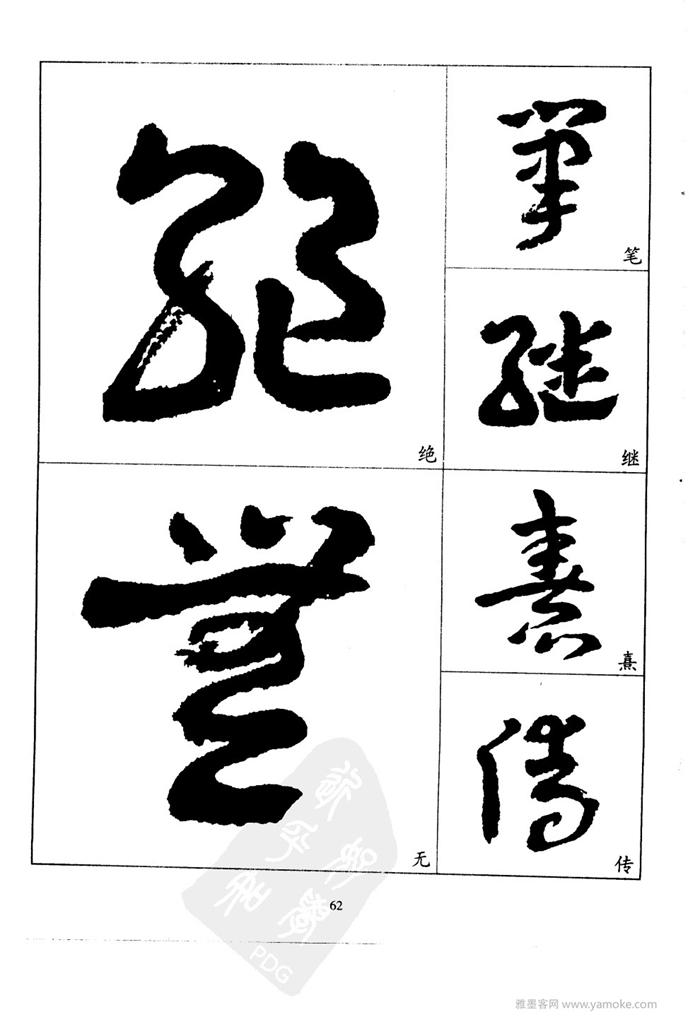 筆
笔
絕
绝
继
继
無
无
熹
熹
傳
传
62
PDG
雅墨客网 www.yamoke.com